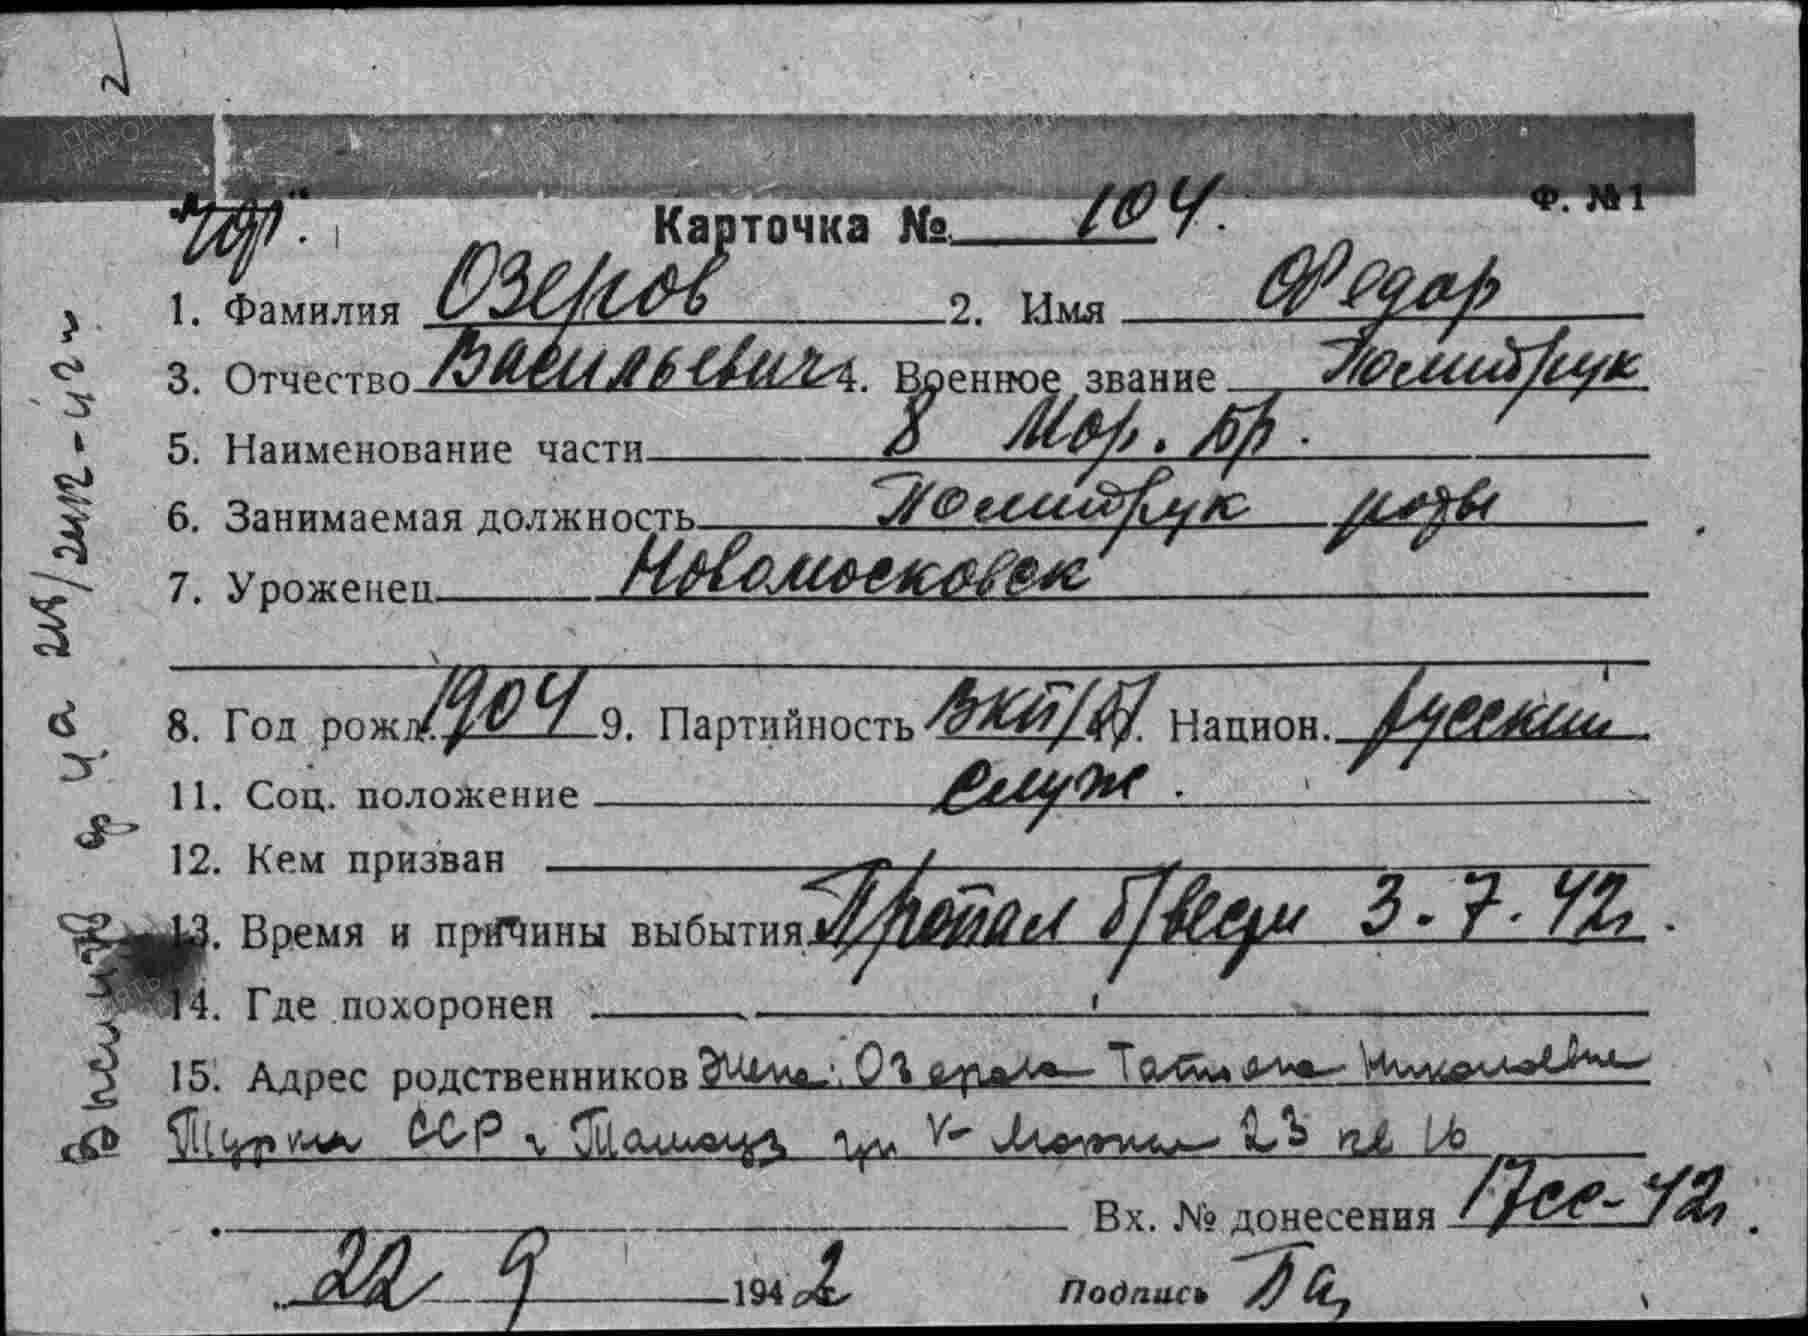 Ф. №1
"Чф".
Карточка № 104.
1. Фамилия Озеров 2. Имя Федор
3. Отчество Васильевич 4. Военное звание Политрук
5. Наименование части 8 Мор. бр.
6. Занимаемая должность Политрук роты
7. Уроженец Новомосковск
8. Год рожд. 1904 9. Партийность ВКП/б/. Национ. русский
11. Соц. положение служ.
12. Кем призван
13. Время и причины выбытия Пропал б/вести 3.7.42г.
14. Где похоронен
15. Адрес родственников Жена: Озерова Татьяна Николаевна
Туркм ССР г Ташауз 23 кв 16
Вх. № донесения 17сс-42г.
22 9 1942 Подпись